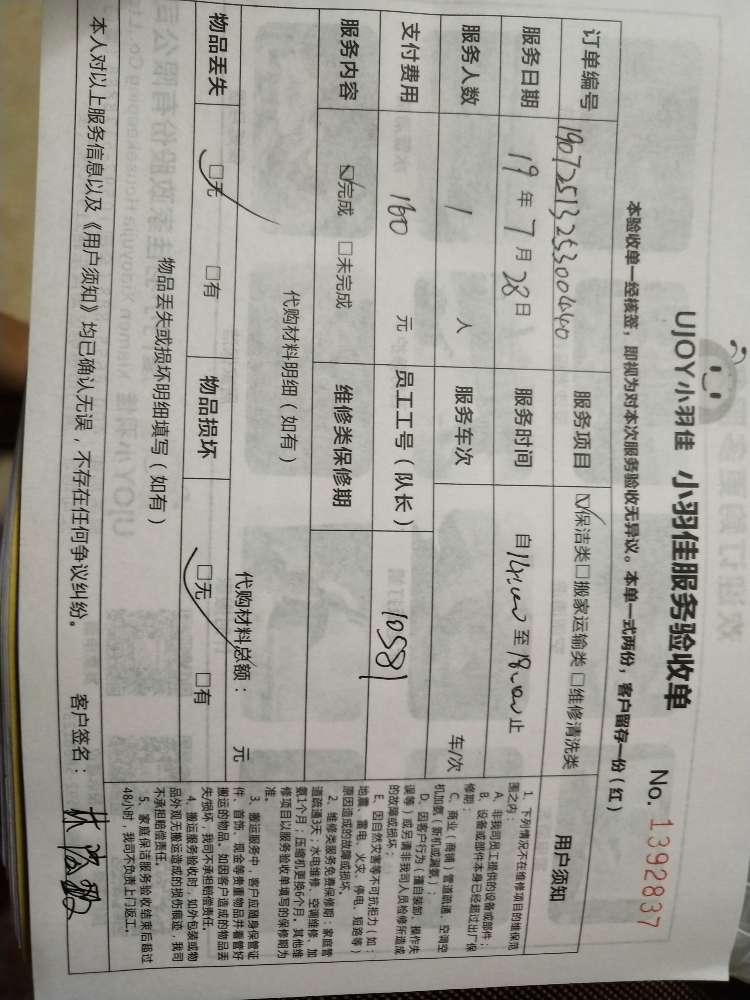 UJOY小羽佳 小羽佳服务验收单 No. 1392837
本验收单一经核签，即视为对本次服务验收无异议。本单一式两份，客户留存一份（红）
订单编号 190725132533004440 服务项目 ☑保洁类□搬家运输类□维修清洗类
服务日期 19年7月28日 服务时间 自14:00至18:00止
服务人数 1 人 服务车次 车/次
支付费用 160 元 员工工号（队长） 10581
服务内容 ☑完成 □未完成 维修类保修期
代购材料明细（如有） 代购材料总额： 元
物品丢失 □无 □有 物品损坏 □无 □有
物品丢失或损坏明细填写（如有）
本人对以上服务信息以及《用户须知》均已确认无误，不存在任何争议纠纷。 客户签名：
用户须知
1、下列情况不在维修项目的维保范
围之内：
A、非我司员工提供的设备或部件；
B、设备或部件本身已经超过出厂保
修期；
C、商业（商铺）管道疏通、空调空
机加氨（新机或漏氨）；
D、因客户行为（擅自装卸、操作失
误等）或另请非我司人员检修所造成
的故障或损坏；
E、因自然灾害等不可抗拒力（如：
地震、雷电、火灾、停电、短路等）
原因造成的故障或损坏。
2、维修类服务免费保修期：家庭管
道疏通3天；水电维修、空调维修、加
氨1个月；压缩机更换6个月。其他维
修项目以服务验收单填写的保修期为
准。
3、搬运服务中，客户应随身保管证
件、首饰、现金等贵重物品并看管好
搬运的物品。如因客户造成的物品丢
失/损坏，我司不承担赔偿责任。
4、搬运服务验收时，如外包装或物
品外观无搬运造成的损伤痕迹，我司
不承担赔偿责任。
5、家庭保洁服务验收结束后超过
48小时，我司不负责上门返工。